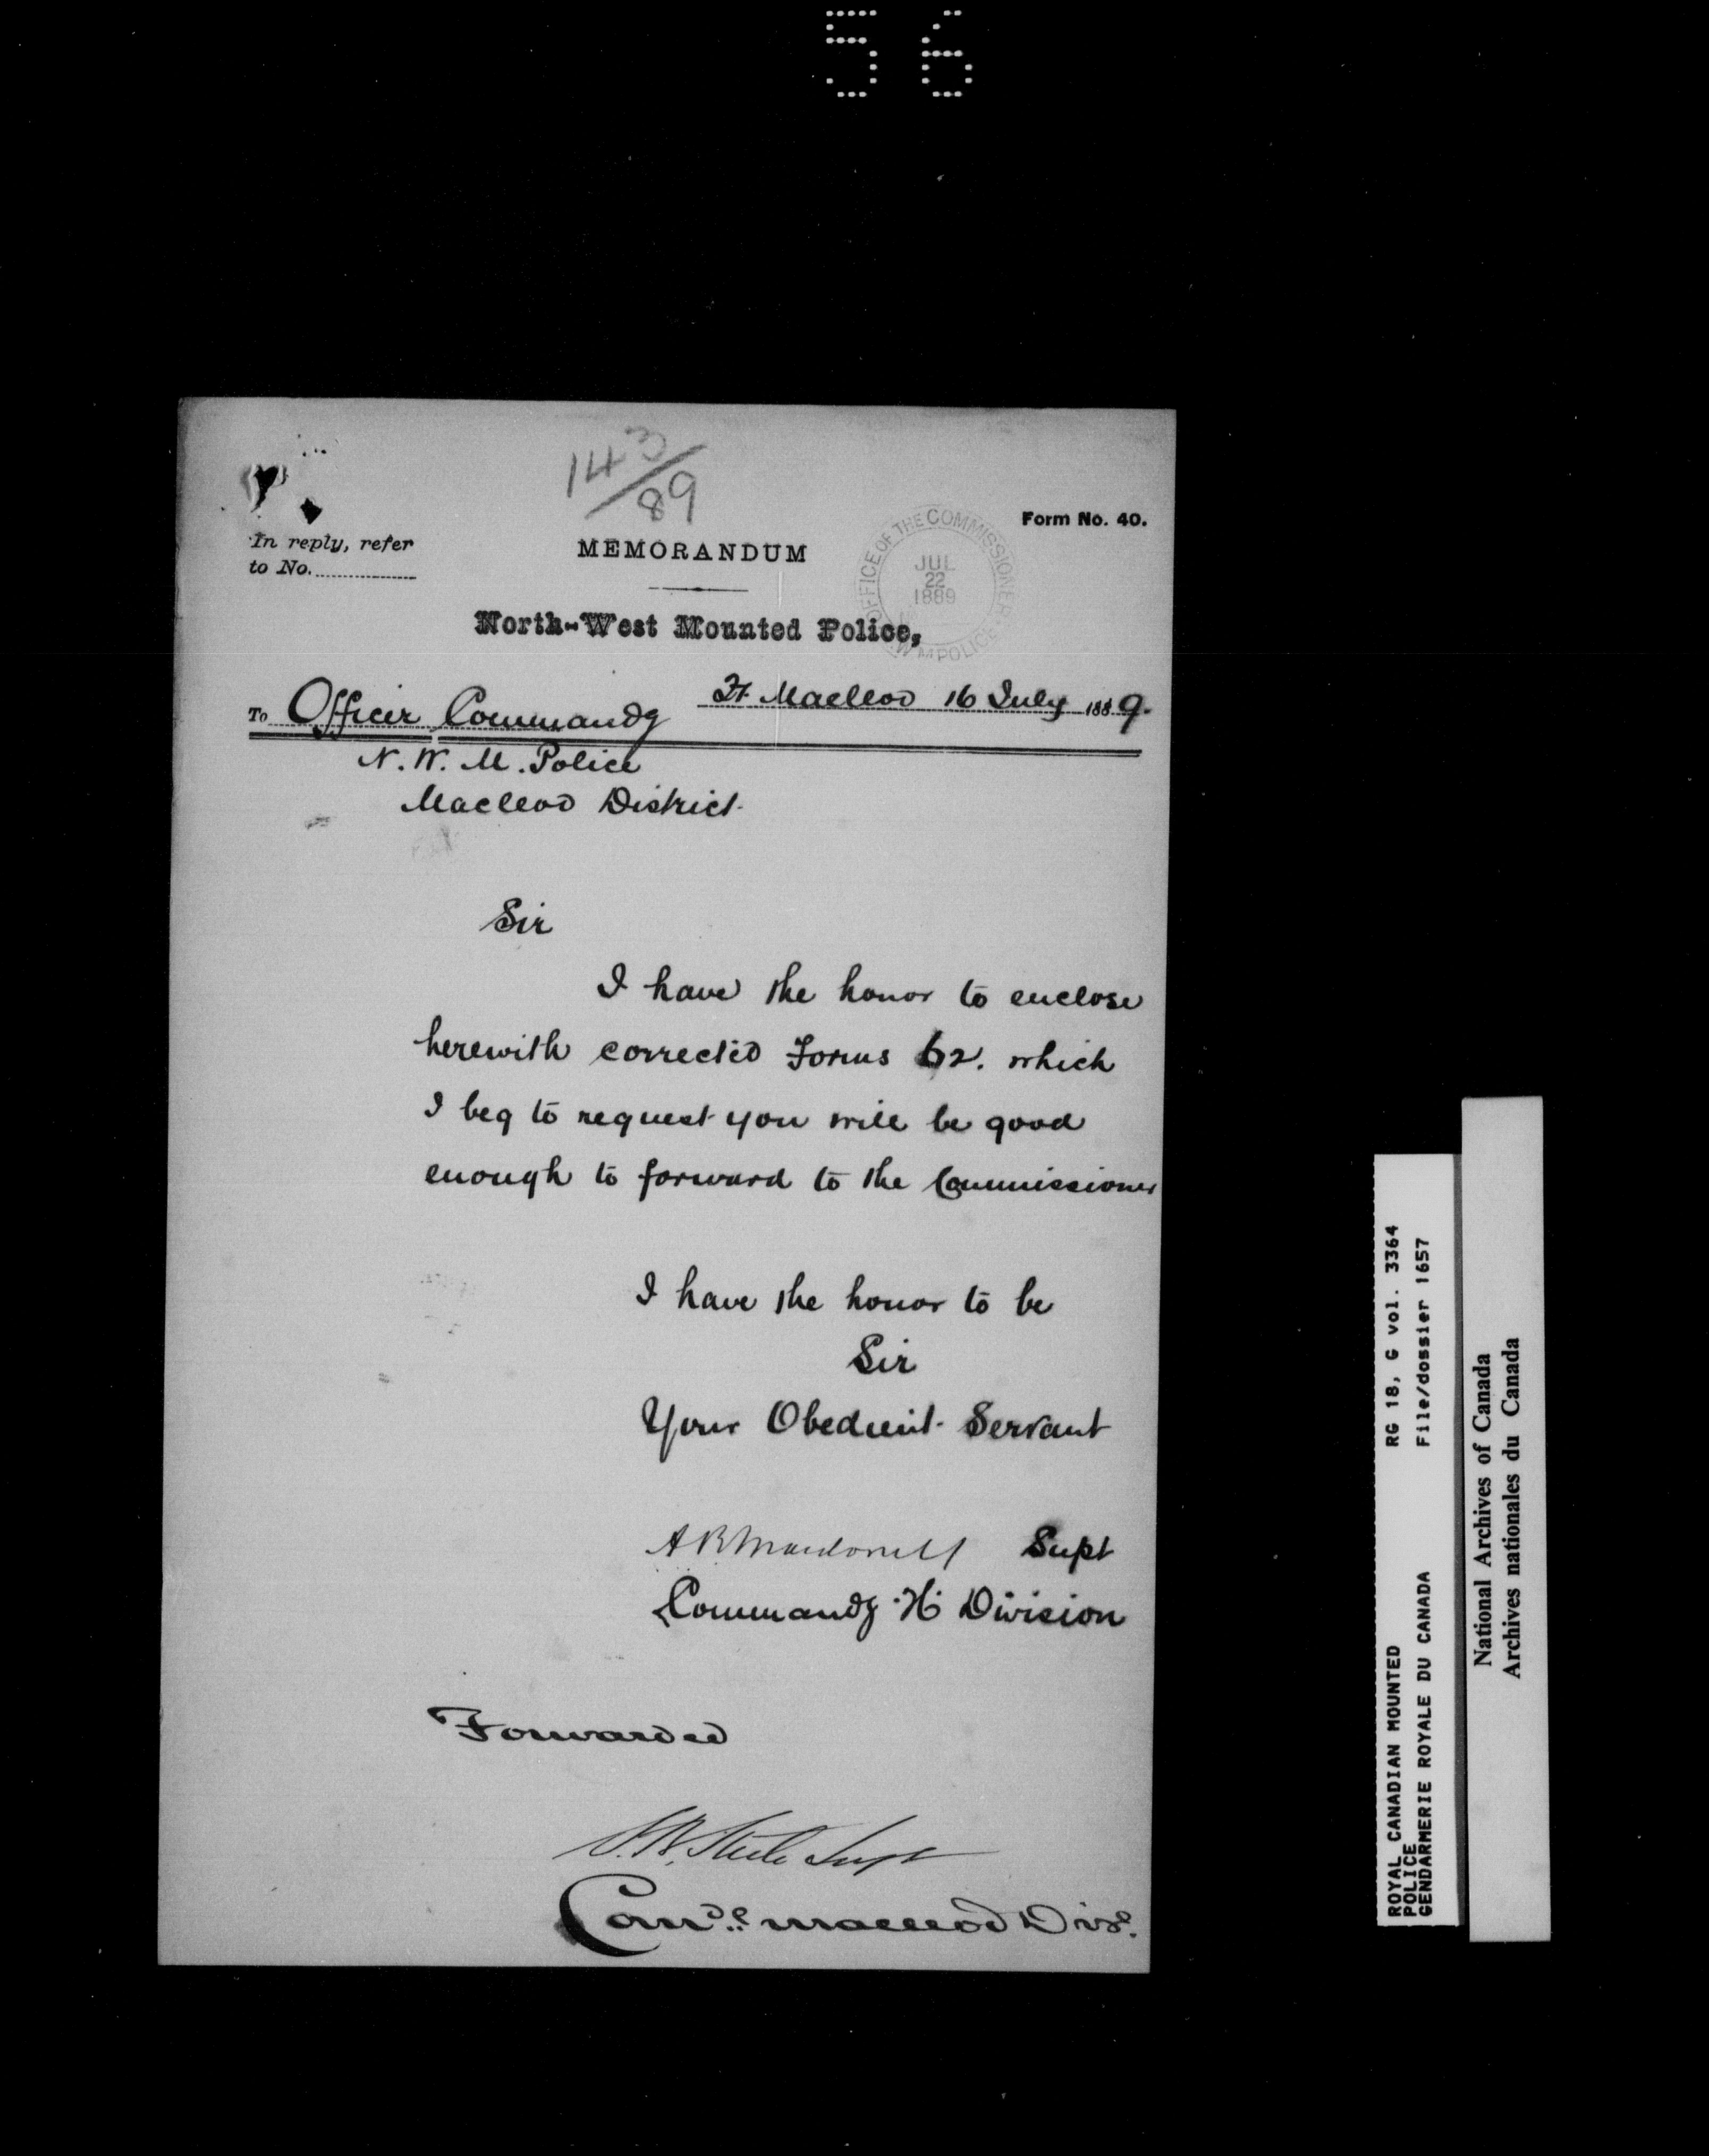 56
143/89
Form No. 40.
In reply, refer
to No.
MEMORANDUM
OFFICE OF THE COMMISSIONER
JUL
22
1889
N W M POLICE
North-West Mounted Police,
Ft. Macleod 16 July 1889.
To Officer Commandg
N. W. M. Police
Macleod District.
Sir
I have the honor to enclose
herewith corrected Forms 62. which
I beg to request you will be good
enough to forward to the Commissioner
I have the honor to be
Sir
Your Obedient Servant
A R Macdonell Supt
Commandg "H" Division
Forwarded
S. B. Steele Supt
Comdg Macleod Dist.
ROYAL CANADIAN MOUNTED
POLICE
GENDARMERIE ROYALE DU CANADA
RG 18, G vol. 3364
File/dossier 1657
National Archives of Canada
Archives nationales du Canada